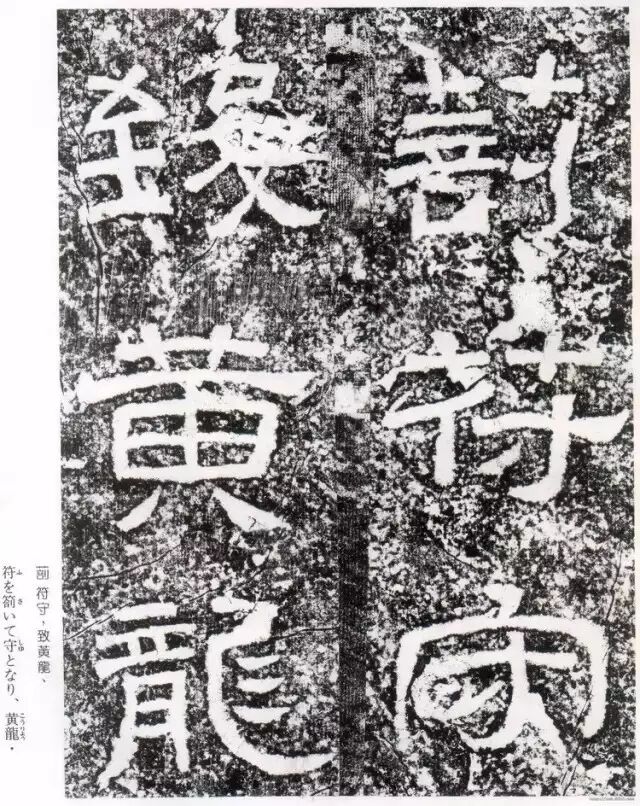 剖符守
致黃龍
剖符守，致黃龍、
符を剖いて守となり、黄龍・